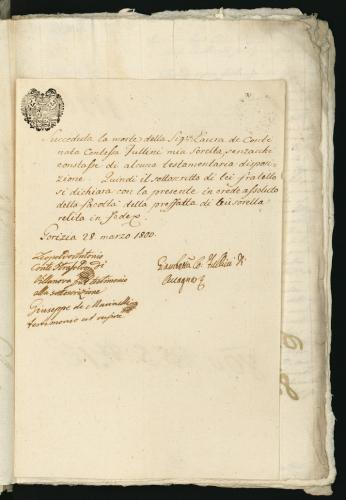 Succeduta la morte della Sig.ra Laura de Conti
nata Contessa Tullini mia Sorella, senzacché
constasse di alcuna testamentaria dispo-
zione. Quindi il sottoscritto di lei fratello
si dichiara con la presente in erede assoluto
della facoltà della prefatta di lei sorella
relita in fedex
Gorizia 28. marzo 1800.
Leopoldo Antonio
Conte Strasoldo di
Villanova testimonio
alla sottoscrizione
Giuseppe de Marinelli
testimonio ut supra
Co. Tullini